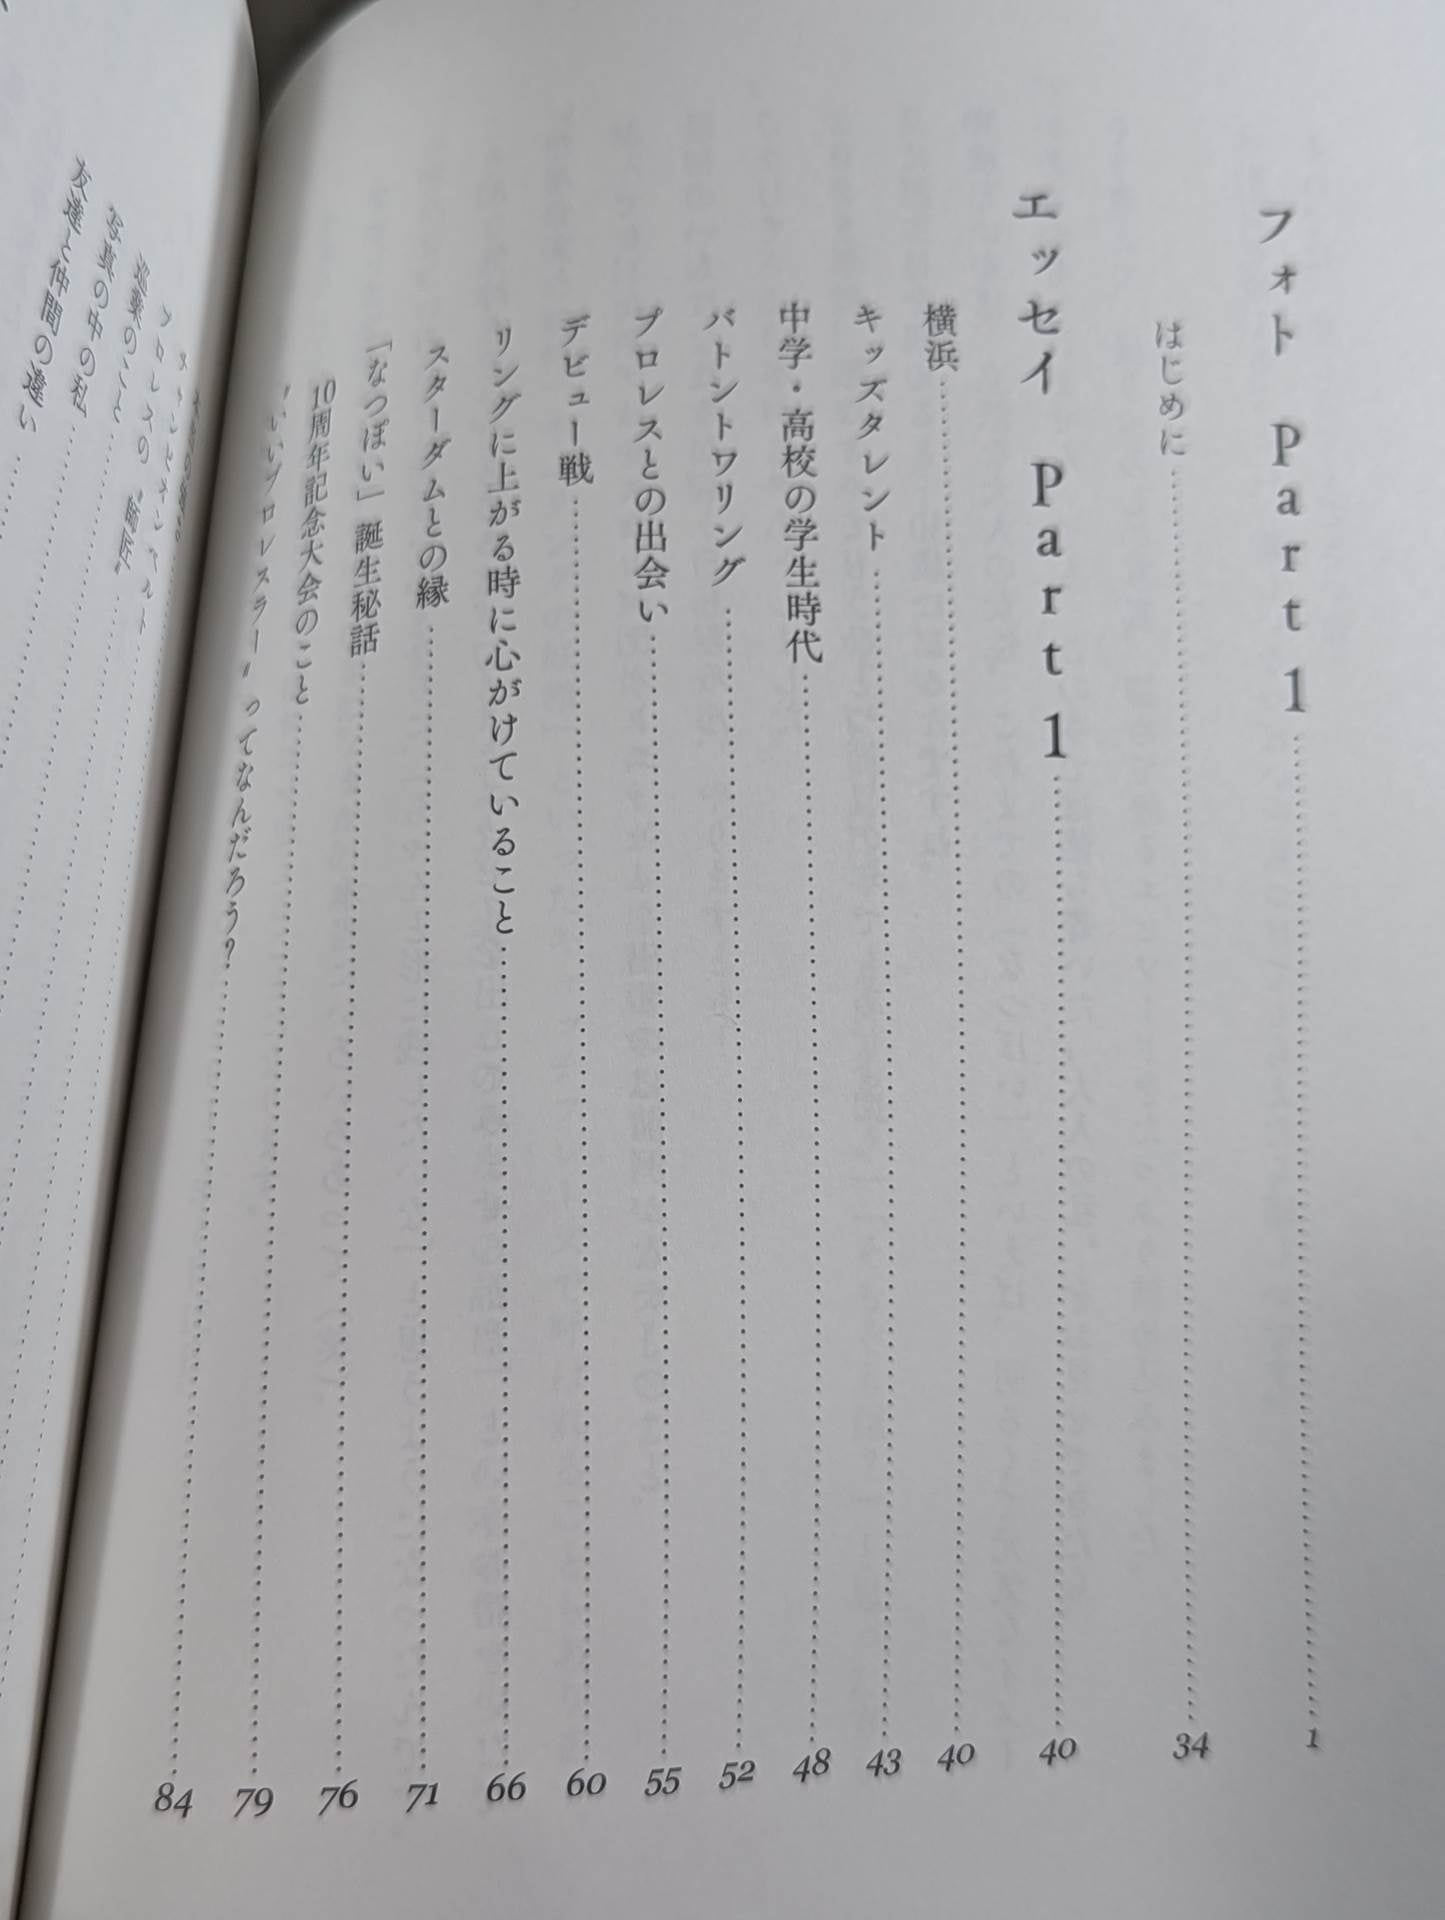 フォト Part 1 …… 1
はじめに …… 34
エッセイ Part 1 …… 40
横浜 …… 40
キッズタレント …… 43
中学・高校の学生時代 …… 48
バトントワリング …… 52
プロレスとの出会い …… 55
デビュー戦 …… 60
リングに上がる時に心がけていること …… 66
スターダムとの縁 …… 71
「なつぽい」誕生秘話 …… 76
10周年記念大会のこと …… 79
“いいプロレスラー”ってなんだろう? …… 84
チャンピオンベルト
プロレスの“師匠”
巡業のこと
写真の中の私
友達と仲間の違い